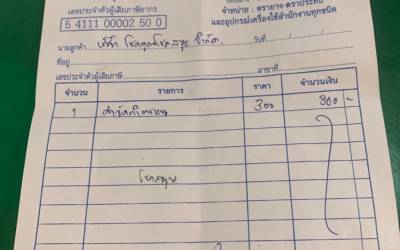 เลขประจำตัวผู้เสียภาษีอากร
5 4111 00002 50 0
จำหน่าย : ตรายาง-ตราประทับ
และอุปกรณ์เครื่องใช้สำนักงานทุกชนิด
นามลูกค้า บริษัท จำกัด วันที่ / /
ที่อยู่
เลขประจำตัวผู้เสียภาษี สาขาที่
จำนวน รายการ ราคา จำนวนเงิน
1 300 300 -